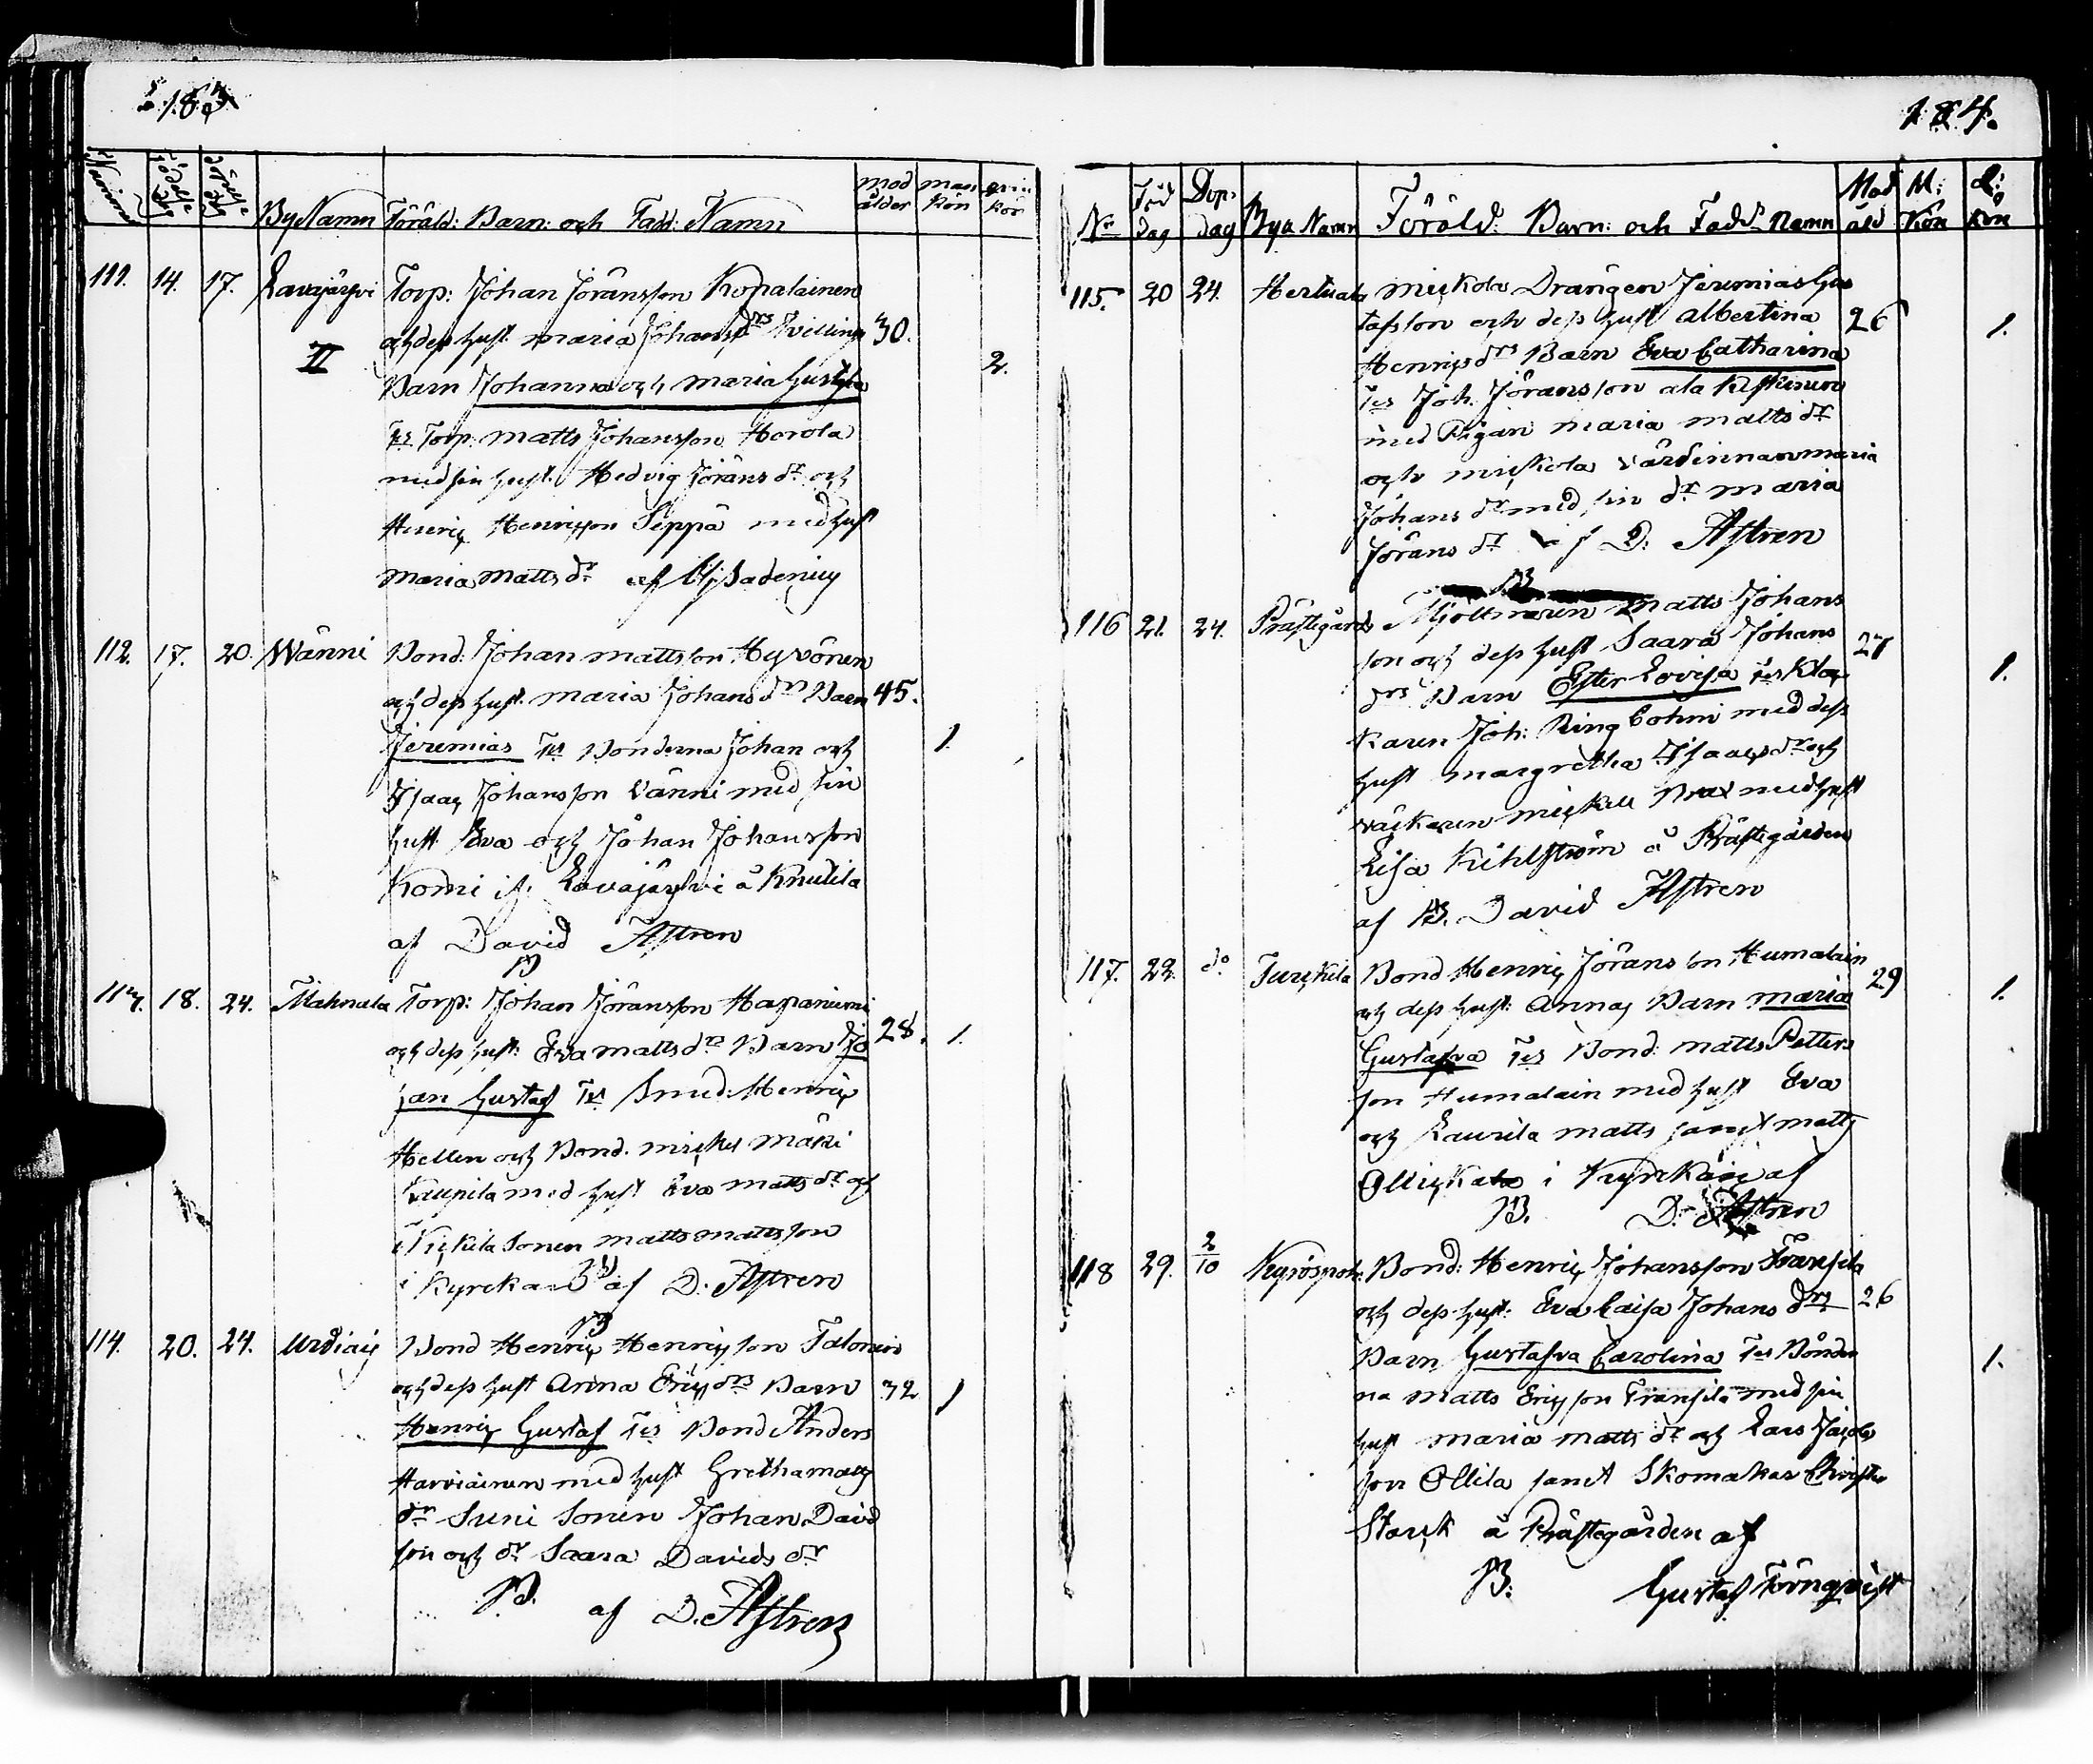 183
Födelse dag
döpelse dag
By Namn Föräld: Barn: och Fadd: Namn
mod ålder
man kön
qvin kön
111. 14. 17. Lavajärfvi Torp: Johan Jöransson Kopalainen
och dess hust. maria Johans drs Tvilling 30.
II
2.
Barn Johanna och maria Gustafva
Tes Torp. matts Johansson Horola
med sin hust. Hedvig Jörans dr och
Henric Henricsson Seppä med hust
maria matts dr af
112. 17. 20. Wänni Bond: Johan mattsson Hyvönen
och dess hust. maria Johans drs Barn 45.
Jeremias Tes Bönderna Johan och
1.
Isaac Johansson Vänni med sin
hust Eva och Johan Johansson
Komi if. Lavajärfvi å Knutila
af David Astren
B
113. 18. 24. Mahnala Torp: Johan Jöransson Hapaniemi
och dess hust: Eva matts drs Barn Jo 28. 1.
han Gustaf Tes Smed: Henric
Hellen och Bond. mickel mäki
Kaupila med hust Eva matts dr och
Sonen matts mattsson
i Kyrckan af D. Astren
B
114. 20. 24. Urdiais Bond Henric Henricsson Talonen
och dess hust Anna Erics drs Barn 32 1
Henric Gustaf Tes Bond Anders
Harviainen med hust Gretha matts
dr Suni Sonen Johan David
son och dr Saara Davids dr
B. af D. Astren
184.
No
Föd dag
Döp: dag
Bya Namn Föräld: Barn: och Fadd: Namn
Mod åld
M: Kön
Q: Kön
115. 20 24. Herttuala mickola Drängen Jeremias Gus
tafsson och dess hust albertina 26
1.
Henrics drs Barn Eva Catharina
Tes Joh. Jöransson ala Kiskinen
med Pigan maria matts dr
och mickola värdinnan maria
Johans dr med sin dr maria
Jörans dr af D. Astren
B
116 21. 24. Prästegårds Mjölnaren matts Johans
son och dess hust Saara Johans 27
1.
drs Barn Ester Lovisa Tes Kloc
karen Joh: Ringbohm med dess
hust margretha Isaacs dr och
väckaren mickel Brax med hust
Lisa Kihlström å Prästegården
af B. David Astren
117. 22. do Turckila Bond Henric Jöransson Humalain
och dess hust: Annas Barn maria 29
1.
Gustafva Tes Bond: matts Petters
son Humalain med hust Eva
och Laurila matts samt matts
Ollickala i Kyrckan af
B. D. Astren
118 29. 2/10 Kyröspoh: Bond: Henric Johansson Fransila
och dess hust. Eva Caisa Johans drs 26
Barn Gustafva Carolina Tes Bönder
1.
na matts Ericsson Fransila med sin
hust maria matts dr och Lars Jacobs
son Ollila samt Skomakar Christer
Starck å Prästegården af
B. Gustaf Törnqvist